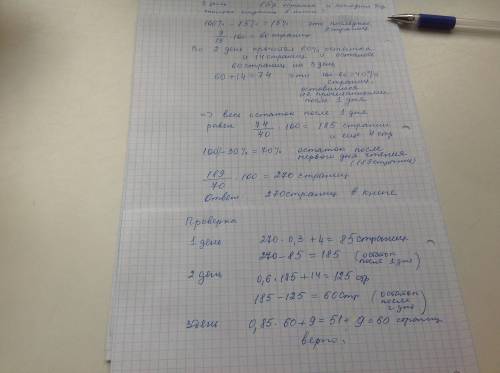 100% - 85% = 15% это последние
9/15 · 100 = 60 страниц
Во 2 день прочитал 60% остатка
и 14 страниц и осталось
60 страниц на 3 день
60 + 14 = 74 это 100-60=40%
страниц,
оставшихся
не прочитанными
после 1 дня
=> весь остаток после 1 дня
равен 74/40 · 100 = 185 страниц
и еще 4 стр
100% - 30% = 70% остаток после
первого дня чтения
189/70 · 100 = 270 страниц
Ответ 270 страниц в книге
Проверка
1 день 270 · 0,3 + 4 = 85 страниц
270 - 85 = 185 (остаток после 1 дня)
2 день 0,6 · 185 + 14 = 125 стр
185 - 125 = 60 стр (остаток после 2 дня)
3 день 0,85 · 60 + 9 = 51 + 9 = 60 страниц
верно.